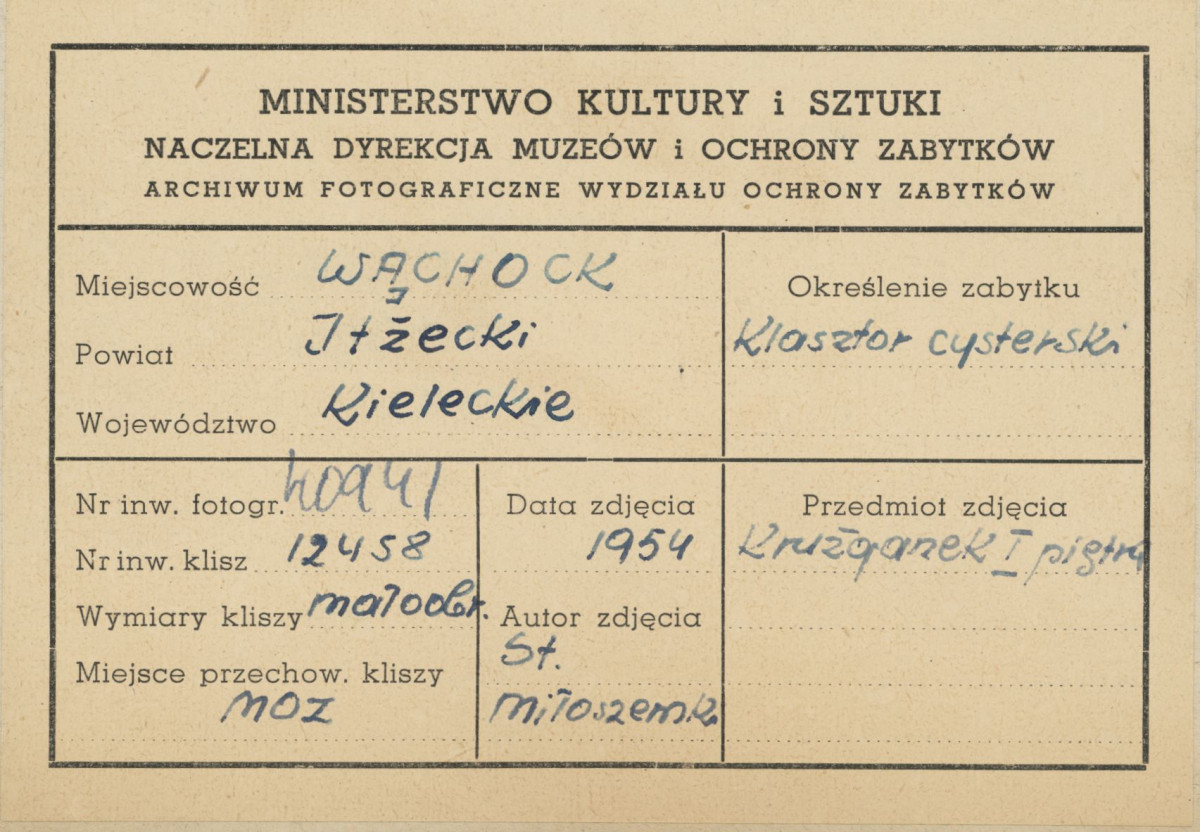 MINISTERSTWO KULTURY i SZTUKI
NACZELNA DYREKCJA MUZEÓW i OCHRONY ZABYTKÓW
ARCHIWUM FOTOGRAFICZNE WYDZIAŁU OCHRONY ZABYTKÓW
Miejscowość WĄCHOCK
Powiat Iłżecki
Województwo Kieleckie
Określenie zabytku
Klasztor cysterski
Nr inw. fotogr. 40941
Nr inw. klisz 12458
Wymiary kliszy małoobr.
Miejsce przechow. kliszy
MOZ
Data zdjęcia
1954
Autor zdjęcia
St.
Przedmiot zdjęcia
Krużganek I piętra